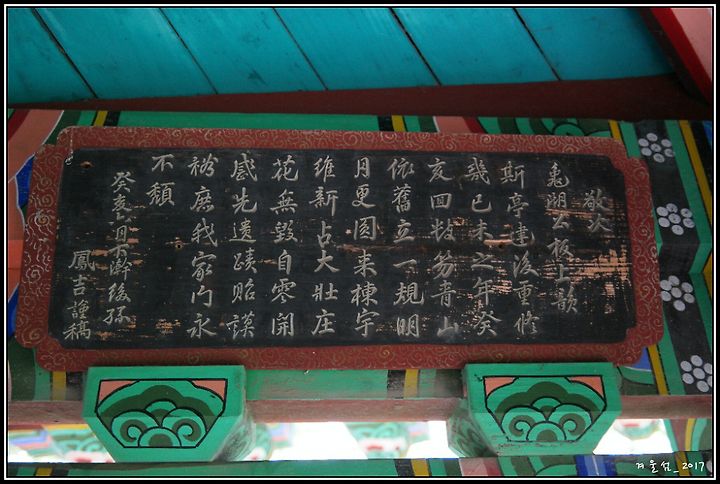 敬次
龜湖公板上韻
斯亭建後重修
幾己未之年癸
亥回枚笏青山
依舊立一規明
月更圓来棟宇
維新占大壯庄
花無毀自零開
感先遺蹟貽謨
裕庶我家門永
不頹
癸亥七月下澣後孫
鳳吉謹稿
겨울섬_2017